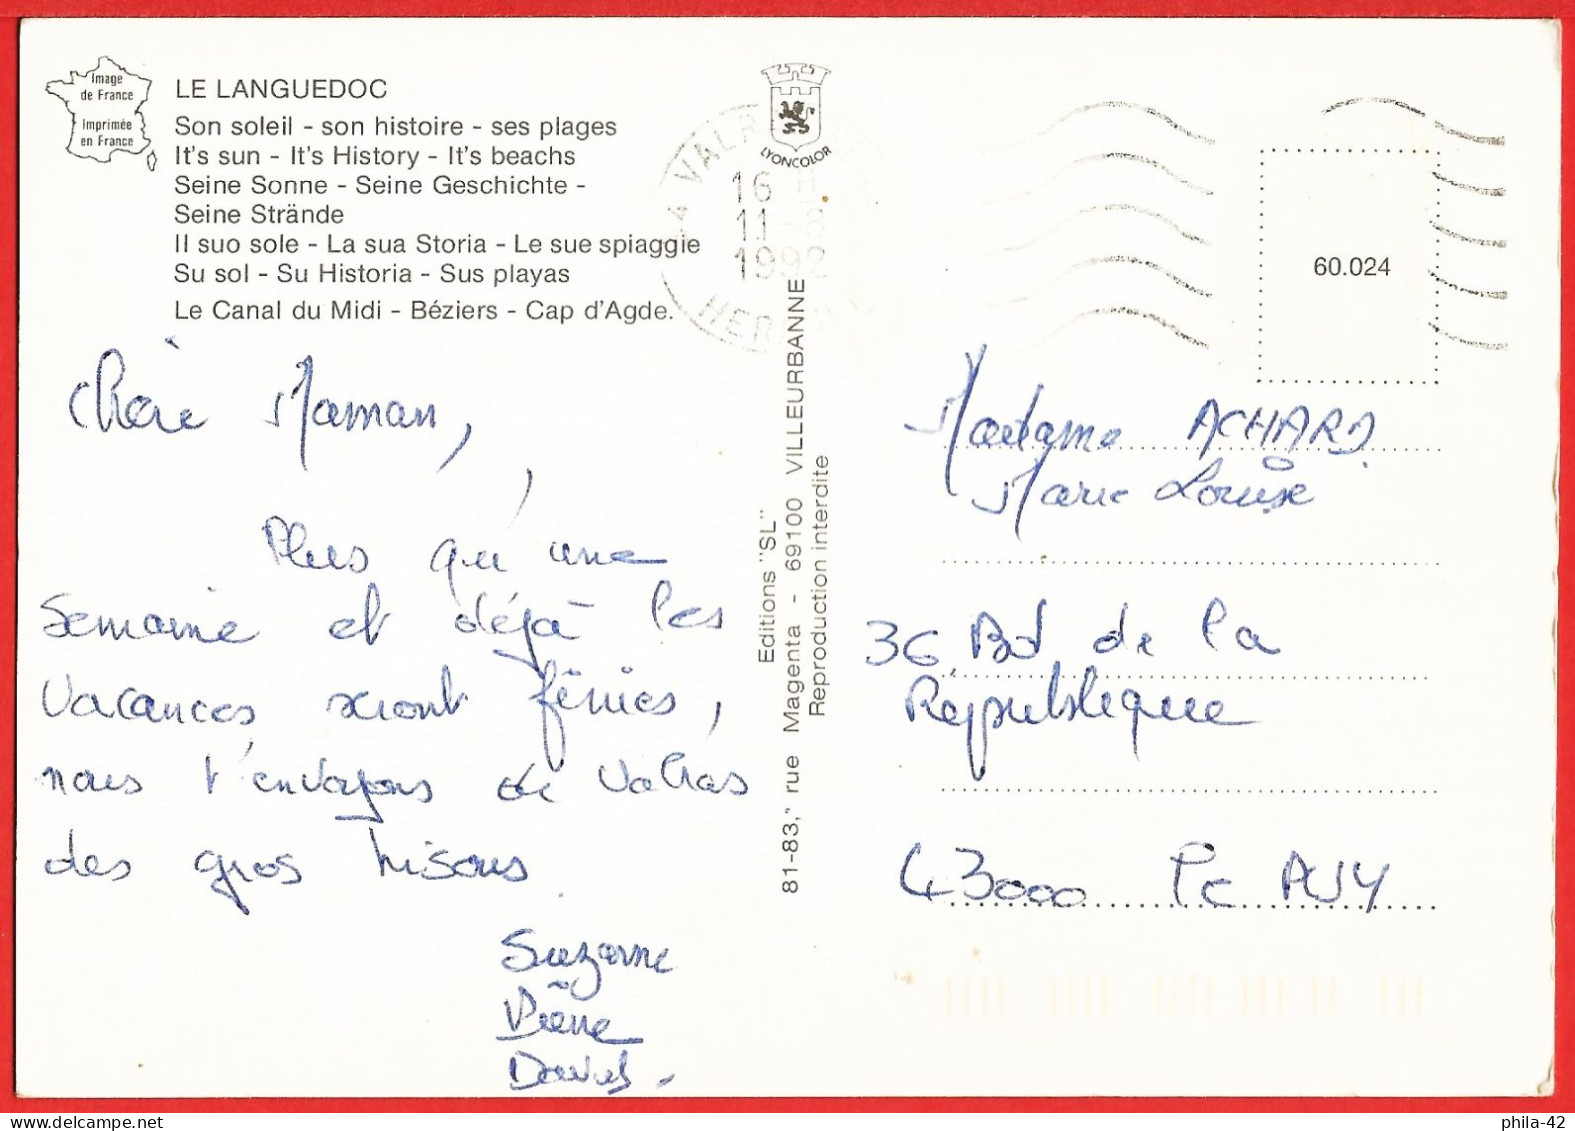 Image
de France
Imprimée
en France
LE LANGUEDOC
Son soleil - son histoire - ses plages
It's sun - It's History - It's beachs
Seine Sonne - Seine Geschichte -
Seine Strände
Il suo sole - La sua Storia - Le sue spiaggie
Su sol - Su Historia - Sus playas
Le Canal du Midi - Béziers - Cap d'Agde.
LYONCOLOR
16 H
11-8
1992
60.024
Chère Maman,
Plus qu'une
semaine et déjà les
vacances seront finies,
nous t'envoyons de Valras
des gros bisous
Suzanne
Pierre
David.
Editions "SL"
81-83, rue Magenta - 69100 VILLEURBANNE
Reproduction interdite
Madame ACHARD
Marie Louise
36 Bd de la
République
43000 Le PUY
phila-42